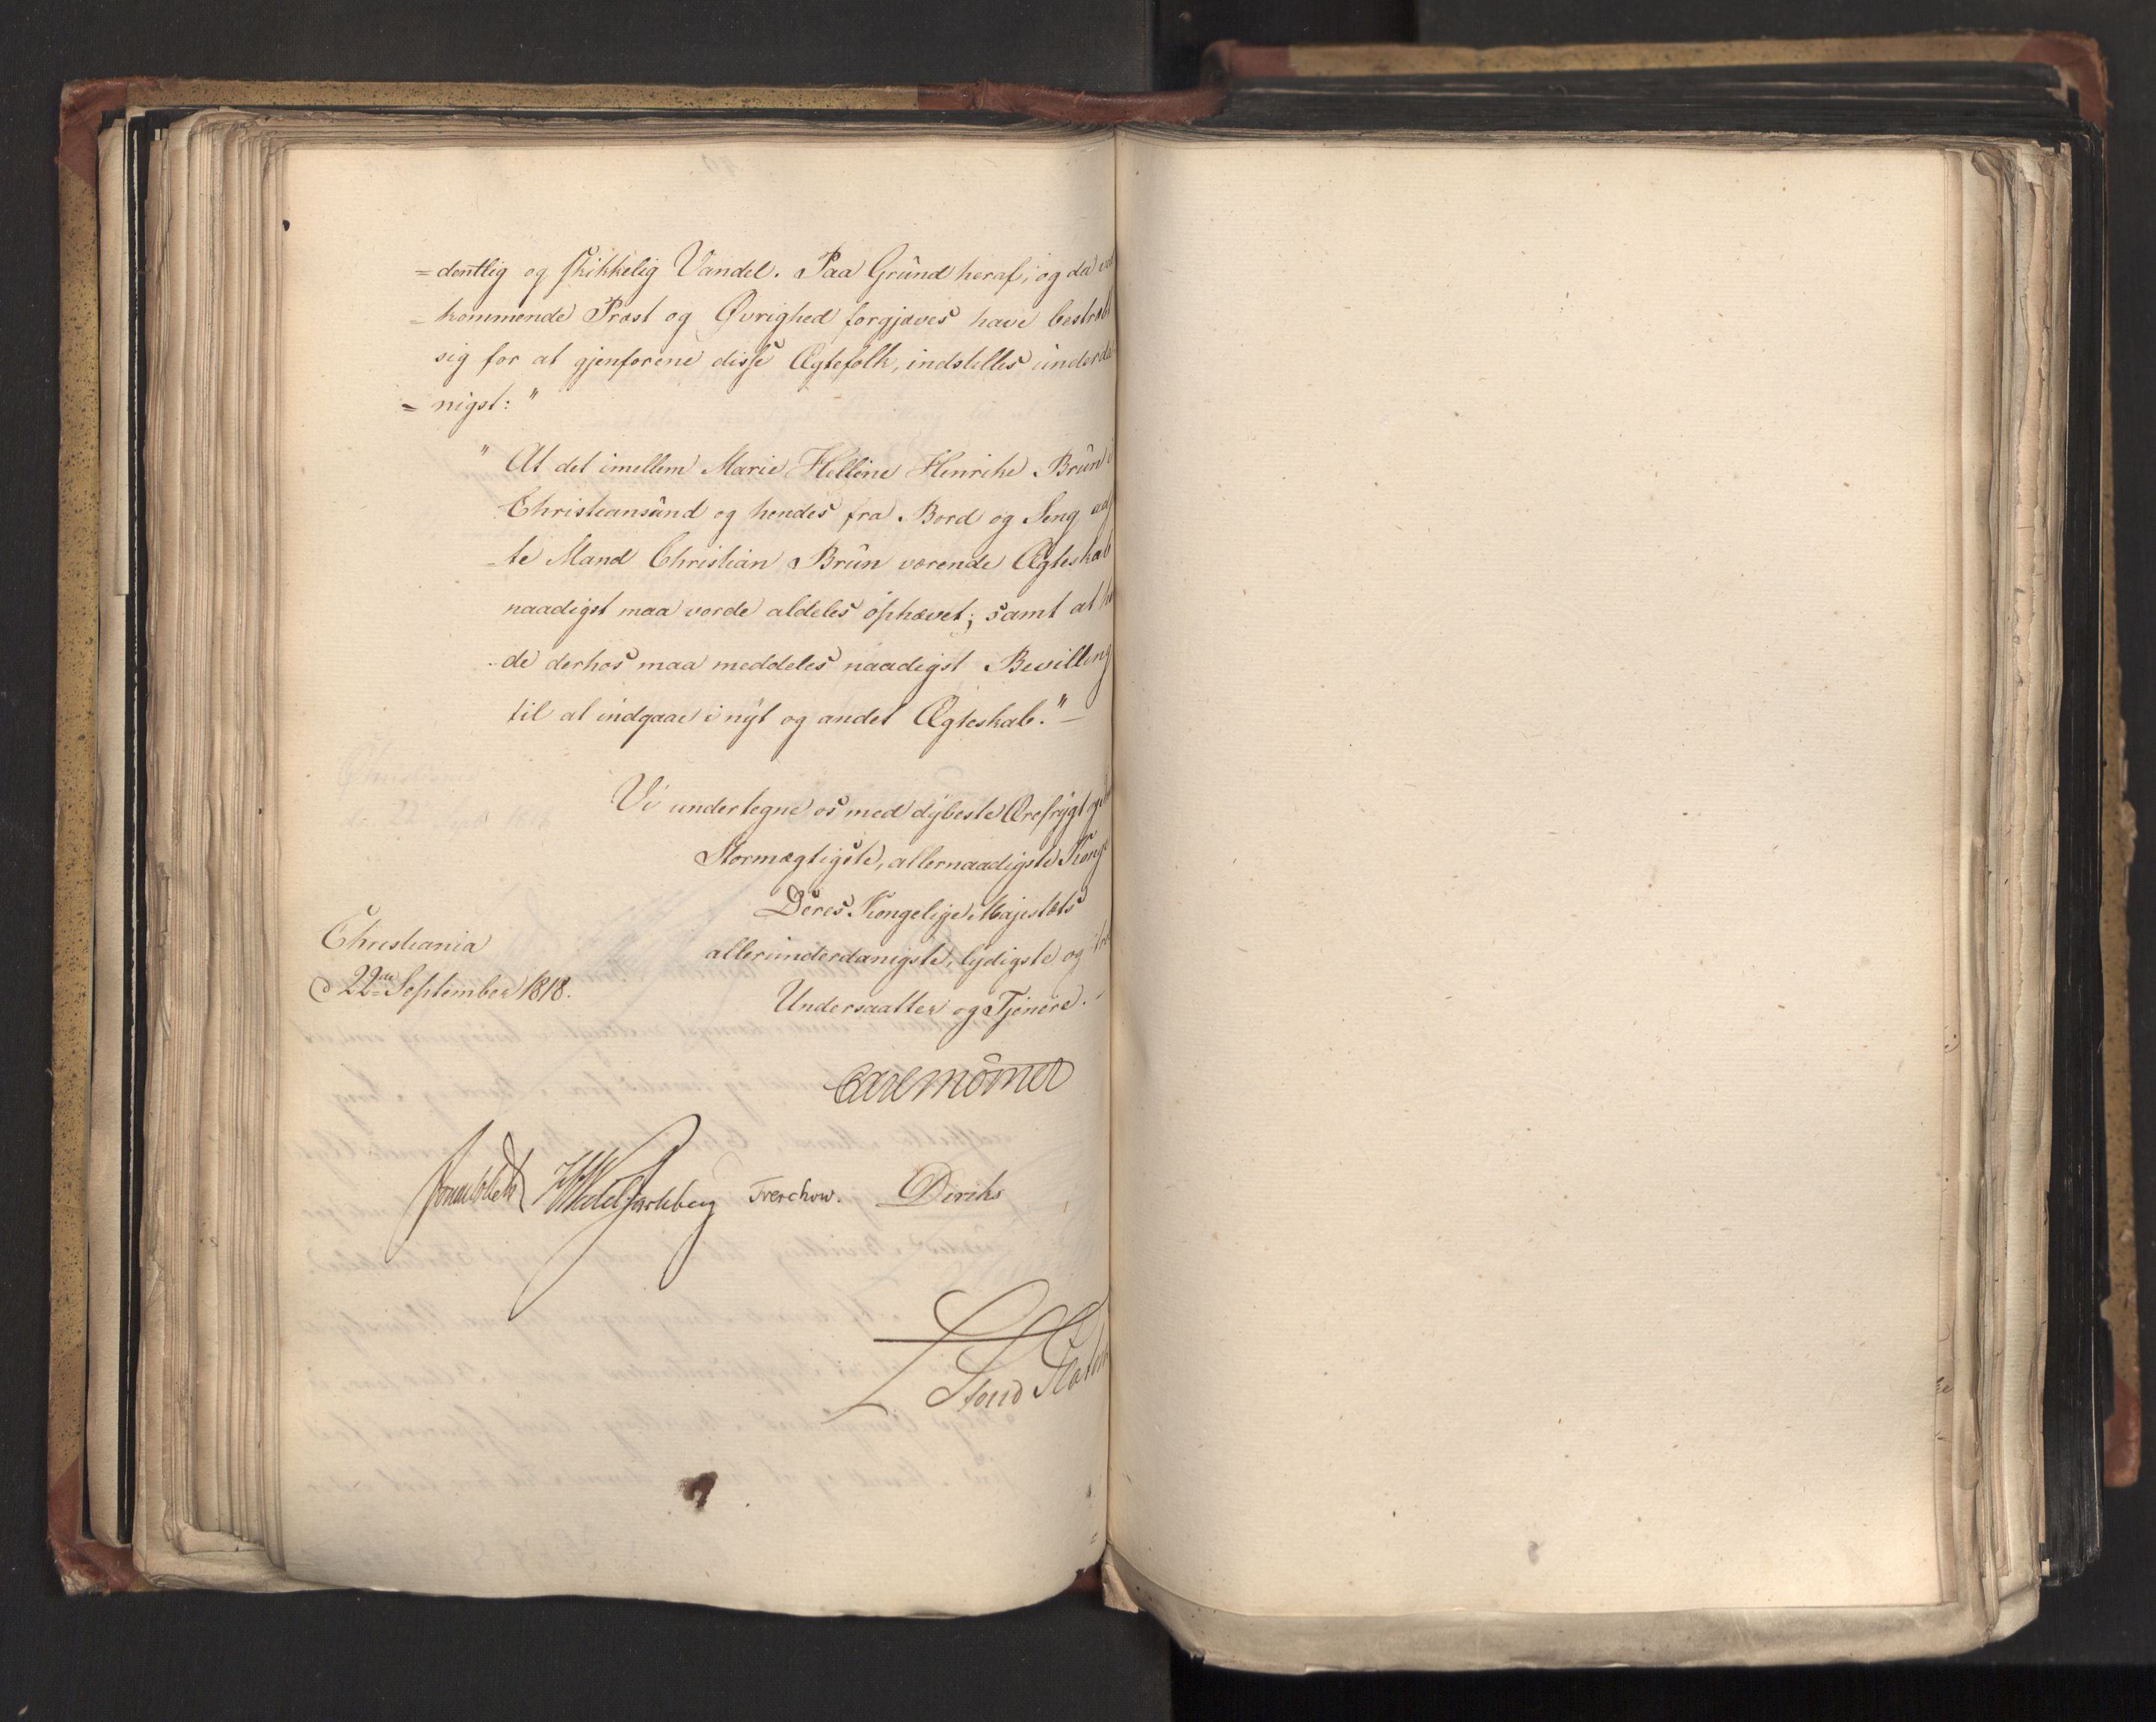 =dentlig og skikkelig Vandel. Paa Grund heraf, og da ved
=kommende Præst og Øvrighed forgjæves have bestræbt
sig for at gjenforene disse Ægtefolk, indstilles underda
=nigst:"
"At det imellem Marie Helline Henrike Brun i
Christiansund og hendes fra Bord og Seng ad
=te Mand Christian Brun værende Ægteskab
naadigst maa vorde aldeles ophævet; samt at
=de derhos maa meddeles naadigst Bevilling
til at indgaae i nyt og andet Ægteskab."—
Vi undertegne os med dybeste Ærefrygt
Stormægtigste, allernaadigste Konge
Deres Kongelige Majestæts
allerunderdanigste, lydigste og
Undersaatter og Tjenere.
Christiania
d 22de September 1818.
Carl Mörner
Jonas Collett HWedel Jarlsberg Treschow. Diriks